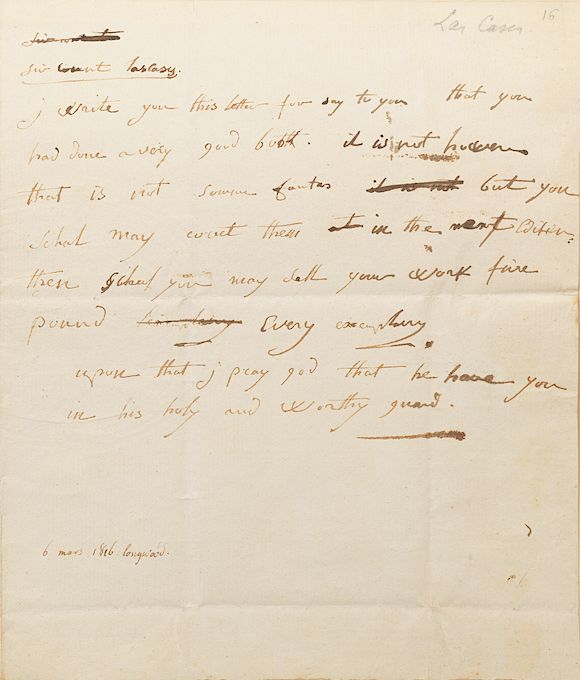 Las Cases. 16
sir count lascasas.
j write you this letter for say to you that you
had done a very good book. it is not however
that is not somme fautes it is not but you
schal may corect them it in the next edition.
then schal you may sell your work five
pound every exemplary
upon that j pray god that he have you
in his holy and worthy guard.
6 mars 1816. longwood.